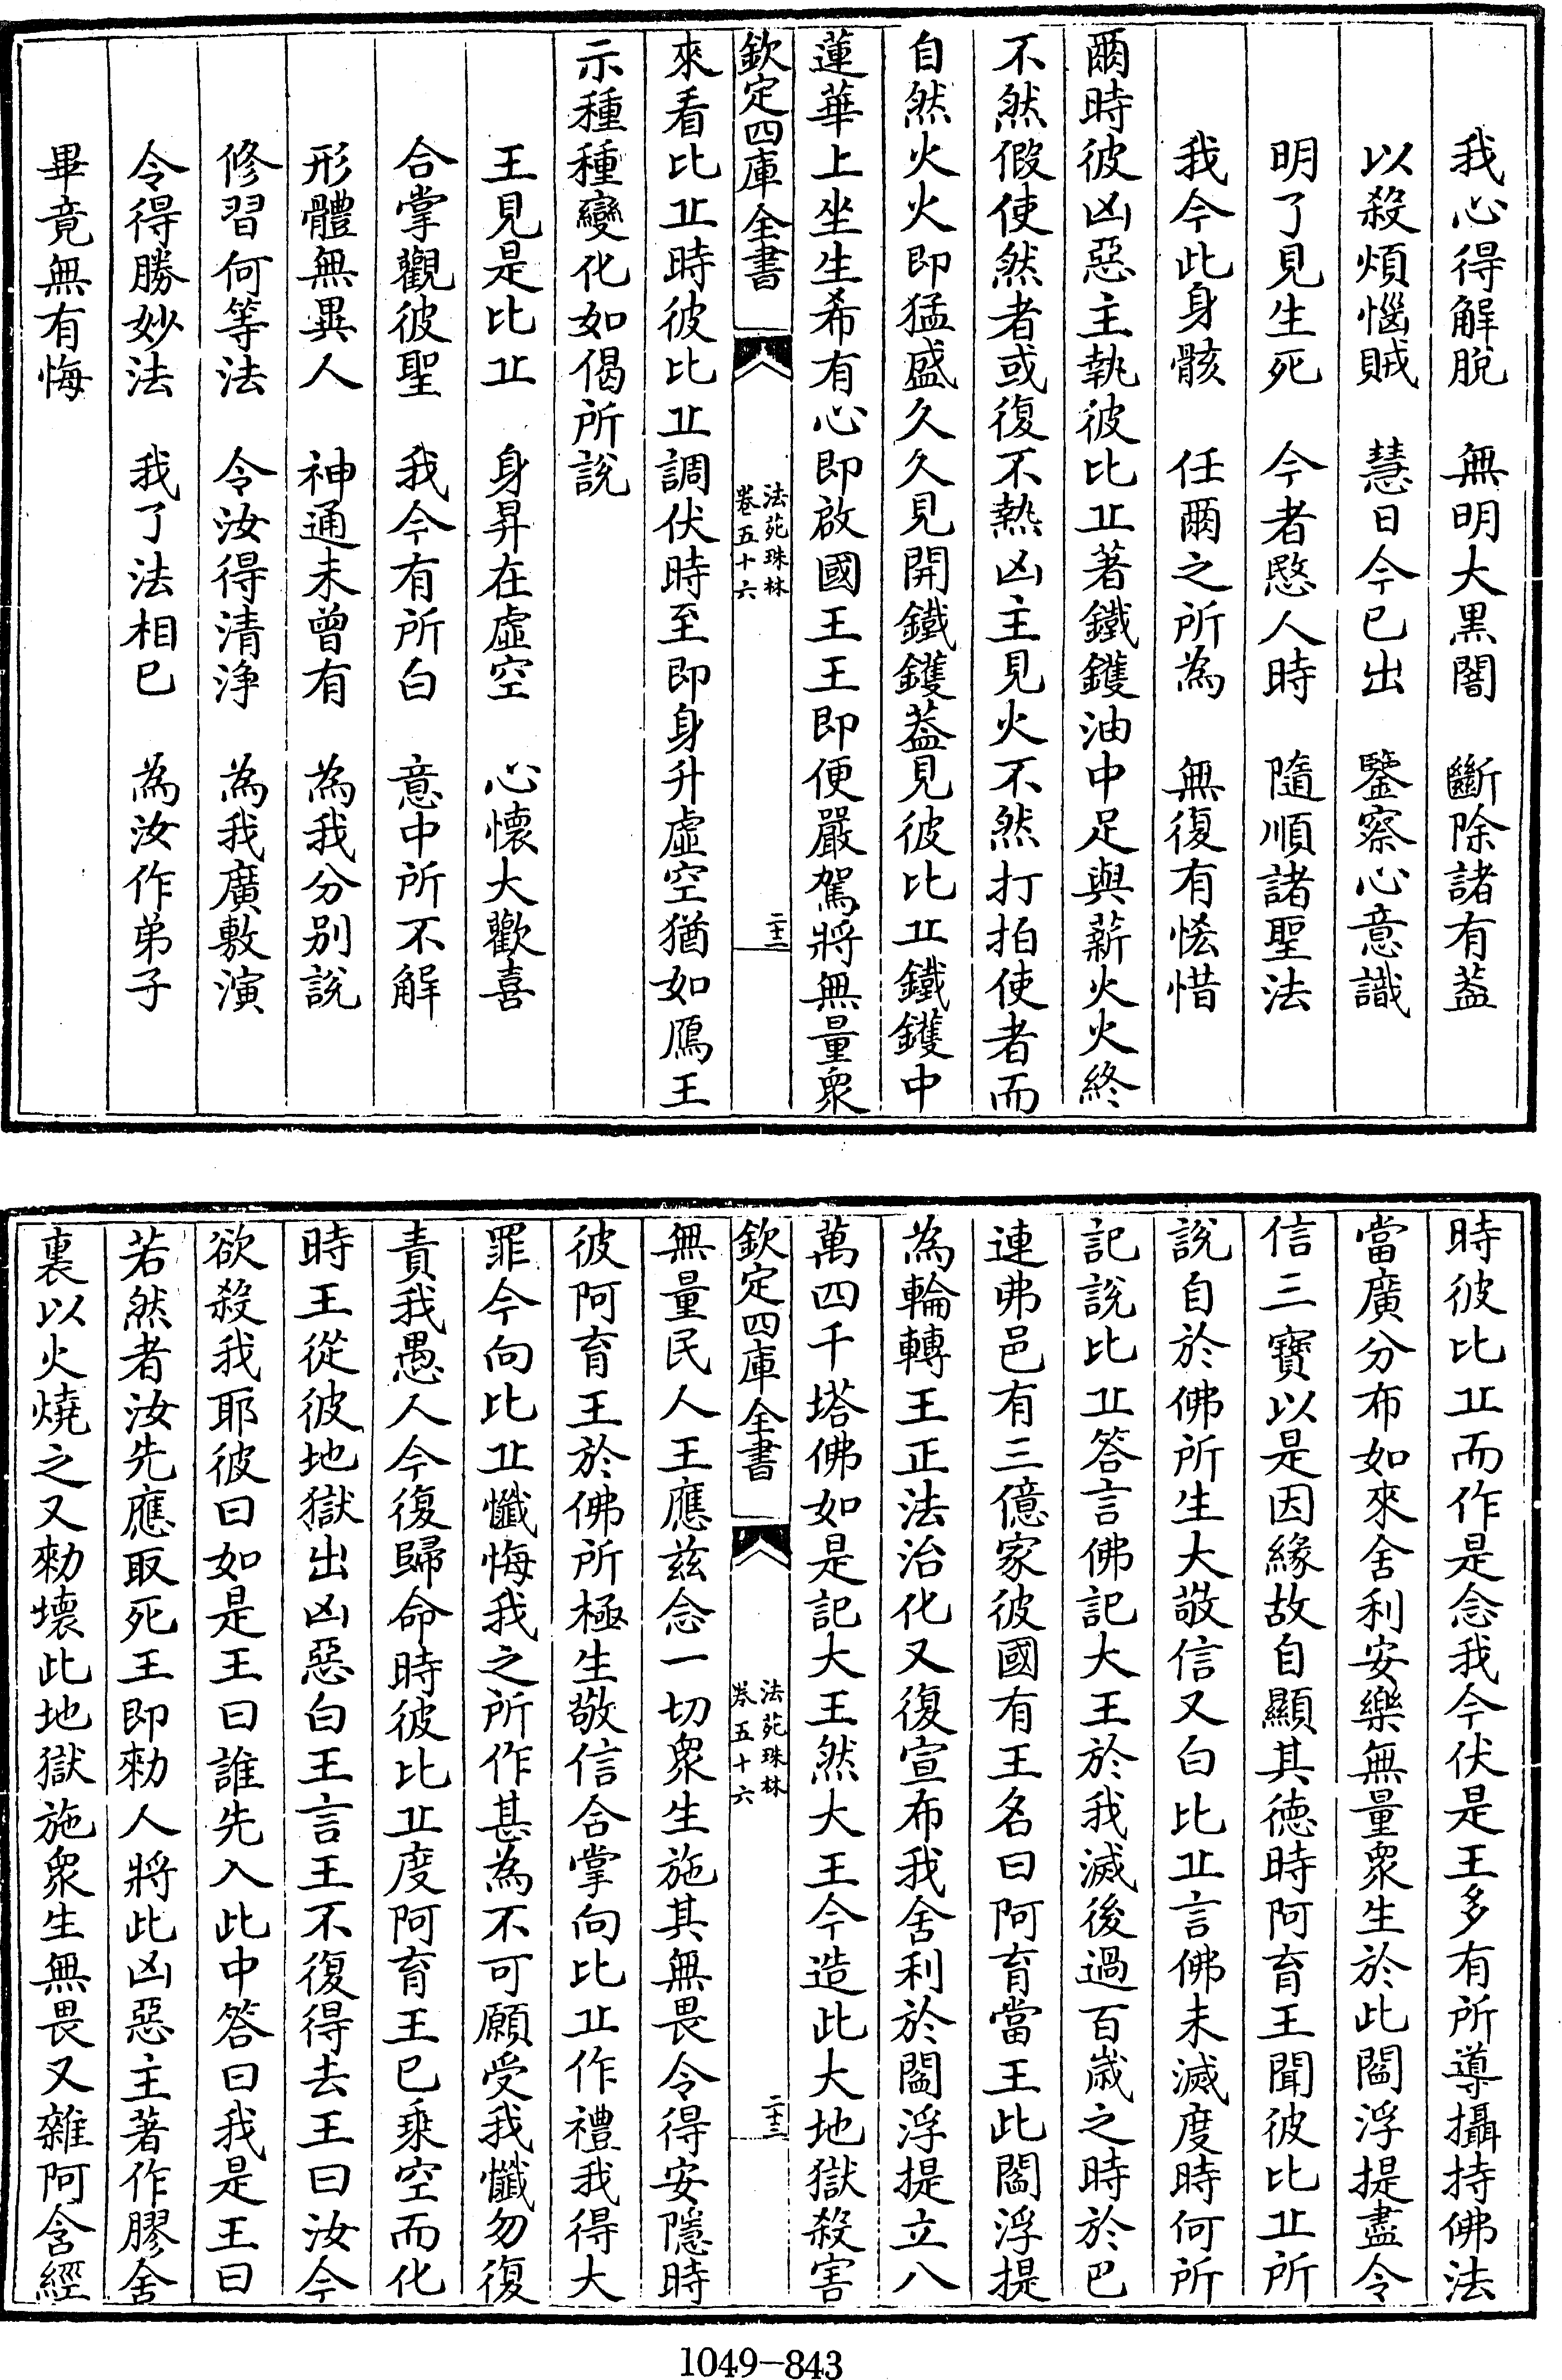 我心得解脫　無明大黑闇　斷除諸有葢
以殺煩惱賊　慧日今已出　鑒察心意識
明了見生死　今者愍人時　隨順諸聖法
我今此身骸　任爾之所為　無復有恡惜
爾時彼凶惡主執彼比丘著鐵鑊油中足與薪火火終
不然假使然者或復不熱凶主見火不然打拍使者而
自然火火即猛盛久久見開鐵鑊葢見彼比丘鐵鑊中
蓮華上坐生希有心即啟國王王即便嚴駕將無量衆
欽定四庫全書
法苑珠林
卷五十六
二十二
來看比丘時彼比丘調伏時至即身升虛空猶如鴈王
示種種變化如偈所說
王見是比丘　身昇在虛空　心懷大歡喜
合掌觀彼聖　我今有所白　意中所不解
形體無異人　神通未曾有　為我分別說
修習何等法　令汝得清淨　為我廣敷演
令得勝妙法　我了法相已　為汝作弟子
畢竟無有悔
時彼比丘而作是念我今伏是王多有所導攝持佛法
當廣分布如來舍利安樂無量衆生於此閻浮提盡令
信三寶以是因緣故自顯其德時阿育王聞彼比丘所
說自於佛所生大敬信又白比丘言佛未滅度時何所
記說比丘答言佛記大王於我滅後過百歲之時於巴
連弗邑有三億家彼國有王名曰阿育當王此閻浮提
為輪轉王正法治化又復宣布我舍利於閻浮提立八
萬四千塔佛如是記大王然大王今造此大地獄殺害
欽定四庫全書
法苑珠林
卷五十六
二十三
無量民人王應兹念一切衆生施其無畏令得安隱時
彼阿育王於佛所極生敬信合掌向比丘作禮我得大
罪今向比丘懺悔我之所作甚為不可願受我懺勿復
責我愚人今復歸命時彼比丘度阿育王已乘空而化
時王從彼地獄出凶惡白王言王不復得去王曰汝今
欲殺我耶彼曰如是王曰誰先入此中答曰我是王曰
若然者汝先應取死王即勑人將此凶惡主著作膠舍
裏以火燒之又勑壞此地獄施衆生無畏又雜阿含經
1049-843